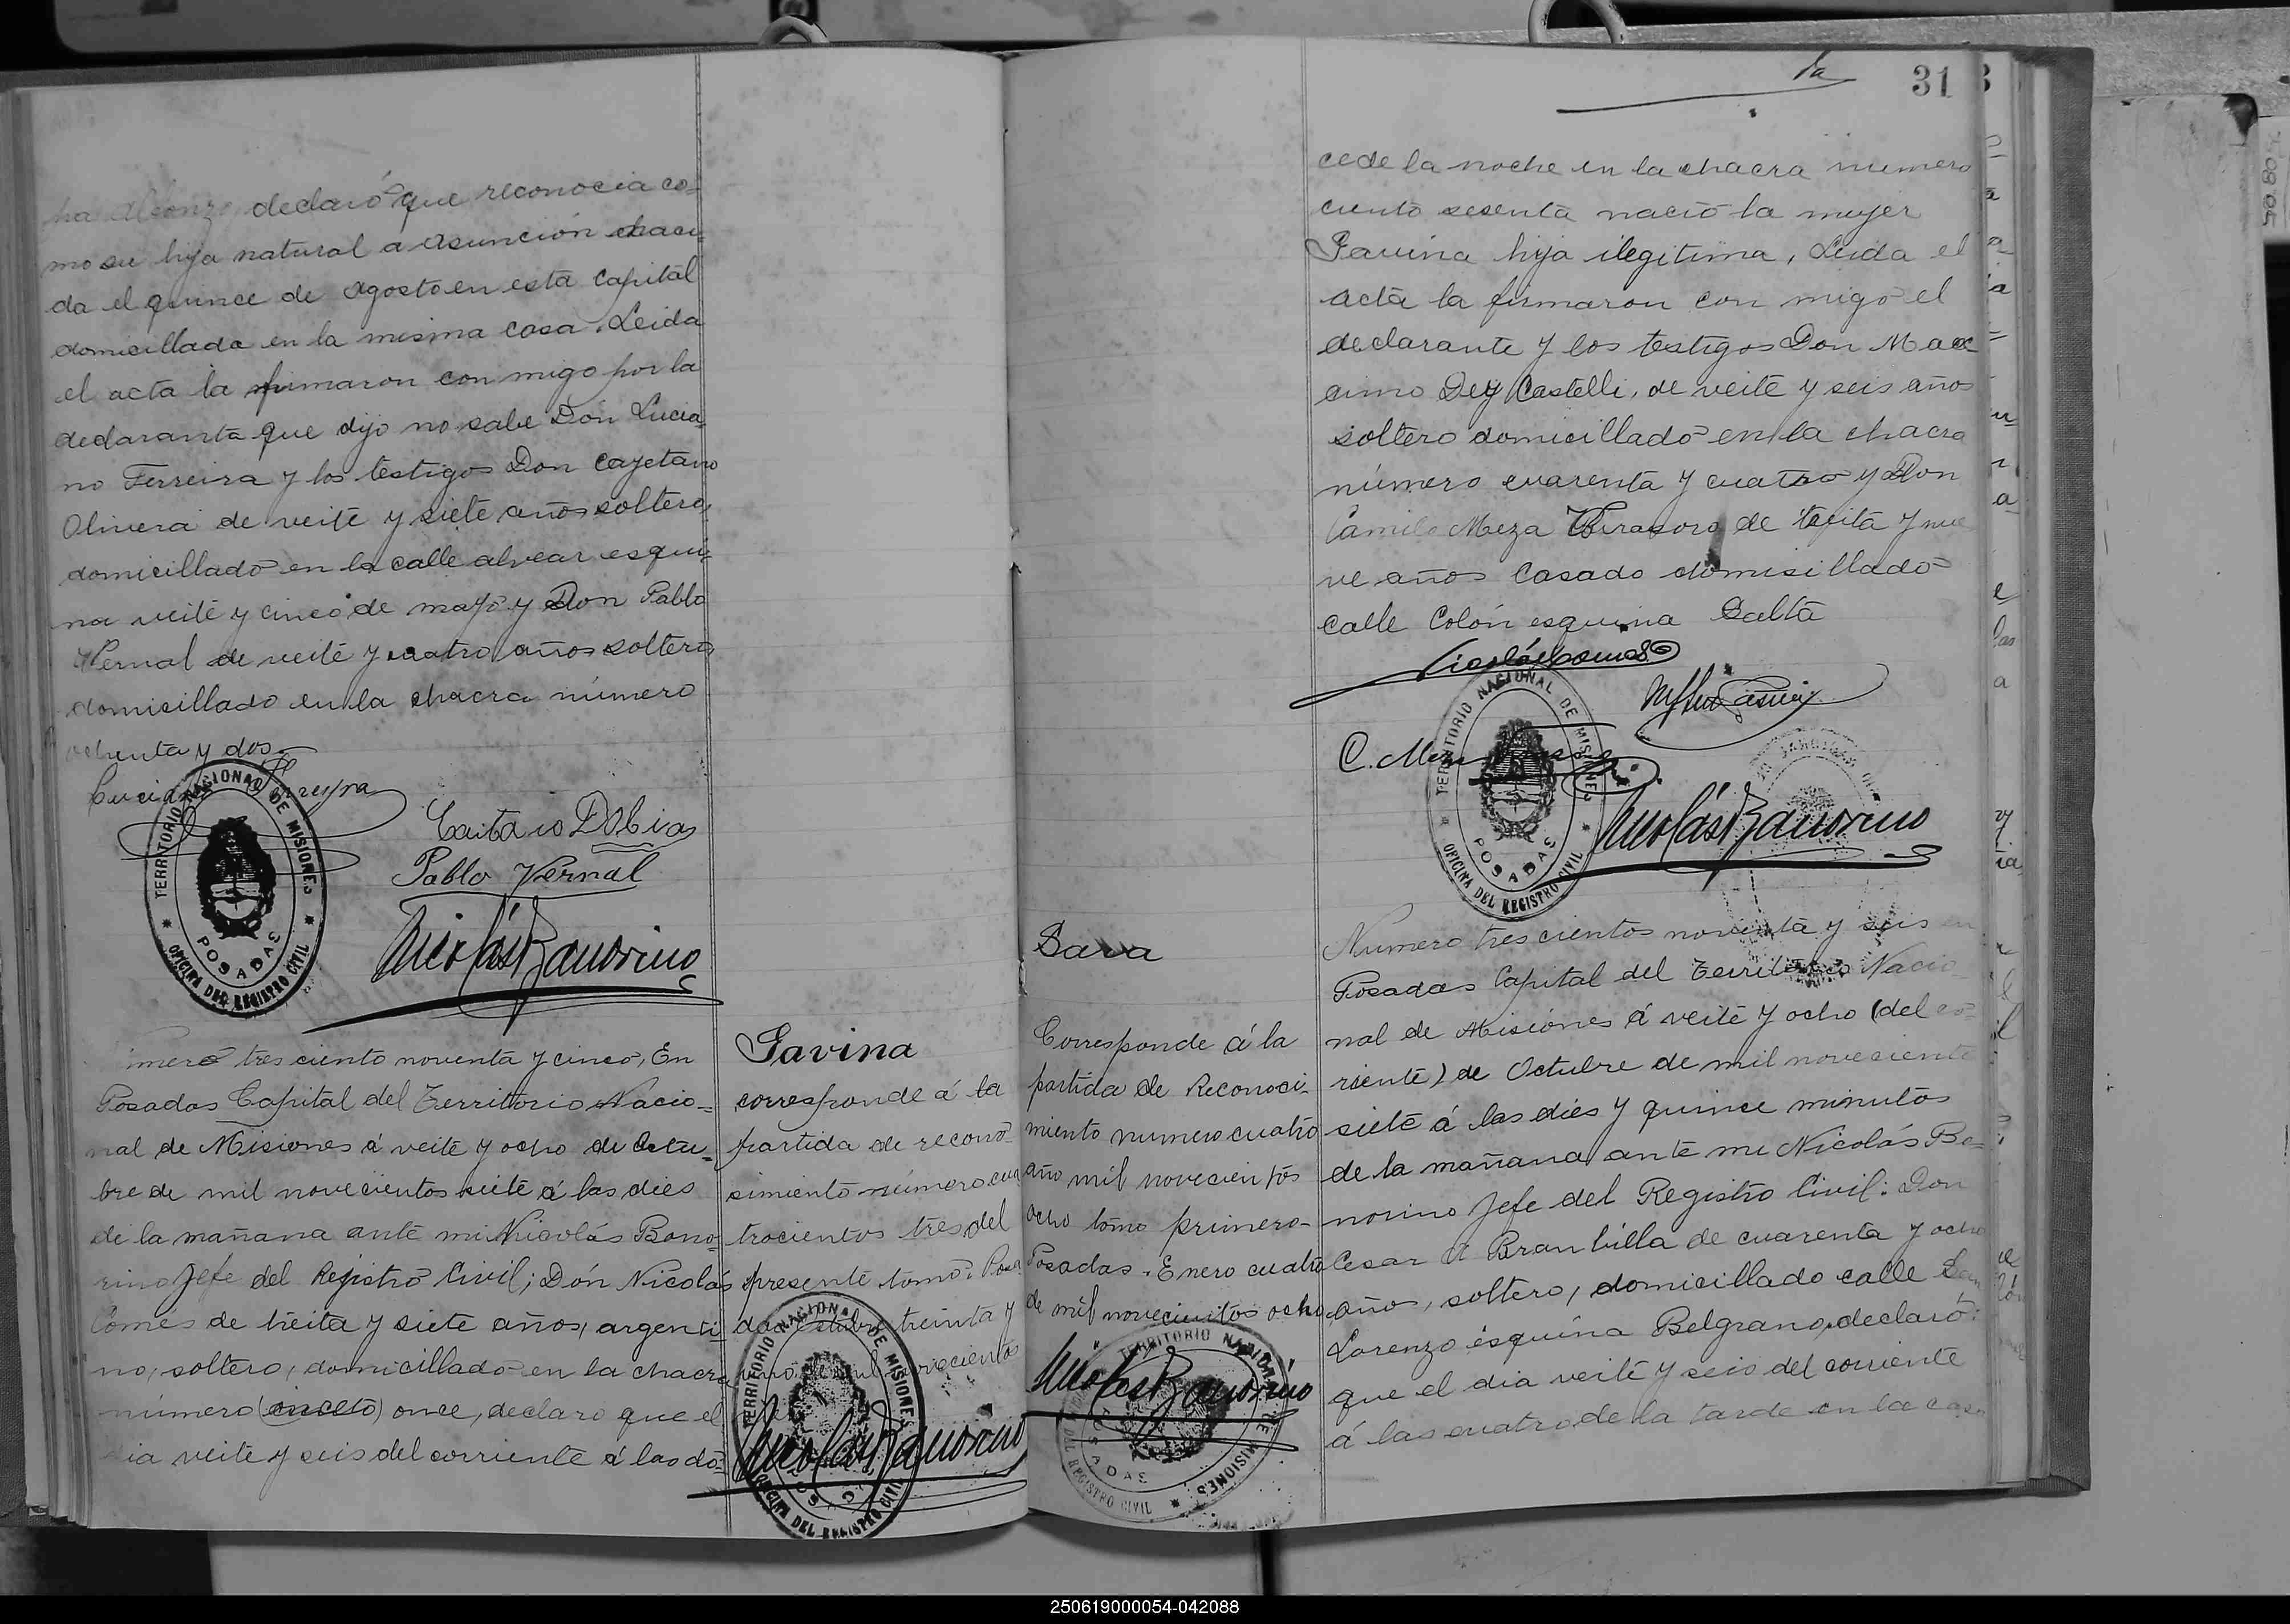 declaró que reconocia co-
mo su hija natural a Asunción naci-
da el quince de Agosto en esta Capital
domicillada en la misma casa. Leida
el acta la firmaron con migo por la
declaranta que dijo no sabe Don Lucia-
no Ferreira y los testigos Don Cayetano
Olivera de veite y siete años soltero,
domicillado en la calle alvear esqui-
na veite y cinco de mayo y Don Pablo
Vernal de veite y cuatro años soltero,
domicillado en la chacra número
ochenta y dos.
Luciano Ferreyra
Pablo Vernal
Nicolás Bonorino
TERRITORIO NACIONAL DE MISIONES
POSADAS
OFICINA DEL REGISTRO CIVIL
tres ciento noventa y cinco, En
Posadas Capital del Territorio Nacio-
nal de Misiones á veite y ocho de Octu-
bre de mil novecientos siete á las dies
de la mañana ante mi Nicolás Bono-
rino Jefe del Rejistro Civil; Dón Nicolás
Comes de treita y siete años, argenti-
no, soltero, domicillado en la chacra
número once, declaro que el
dia veite y seis del corriente á las do-
Savina
corresponde á la
partida de recono-
simiento número cua
trocientos tres del
presente tomo. Posa
das Octubre treinta y
uno de mil novecientos
Nicolás Bonorino
TERRITORIO NACIONAL DE MISIONES
OFICINA DEL REGISTRO CIVIL
31
ce de la noche en la chacra número
ciento sesenta nació la mujer
Savina hija ilegitima, Leida el
acta la firmaron con migo el
declarante y los testigos Don Max
cimo Dey Castelli, de veite y seis años
soltero domicillado en la chacra
número cuarenta y cuatro y Don
Camilo Meza Virasoro de treita y nue
ve años Casado domisillado
calle Colón esquina Salta
Nicolás Comes
C. Meza
TERRITORIO NACIONAL DE MISIONES
POSADAS
OFICINA DEL REGISTRO CIVIL
Nicolás Bonorino
Sara
Corresponde á la
partida de Reconoci-
miento numero cuatro
año mil novecientos
ocho tomo primero-
Posadas. Enero cuatro
de mil novecientos ocho
Nicolás Bonorino
TERRITORIO NACIONAL DE MISIONES
POSADAS
REGISTRO CIVIL
Numero tres cientos noventa y seis en
Posadas Capital del Territorio Nacio
nal de Misiones á veite y ocho (del co-
riente) de Octubre de mil noveciento
siete á las dies y quince minutos
de la mañana ante mi Nicolás Bo-
norino Jefe del Registro Civil: Don
Cesar A Brambilla de cuarenta y ocho
años, soltero, domicillado calle San
Lorenzo esquina Belgrano, declaró:
que el dia veite y seis del corriente
á las cuatro de la tarde en la casa
250619000054-042088